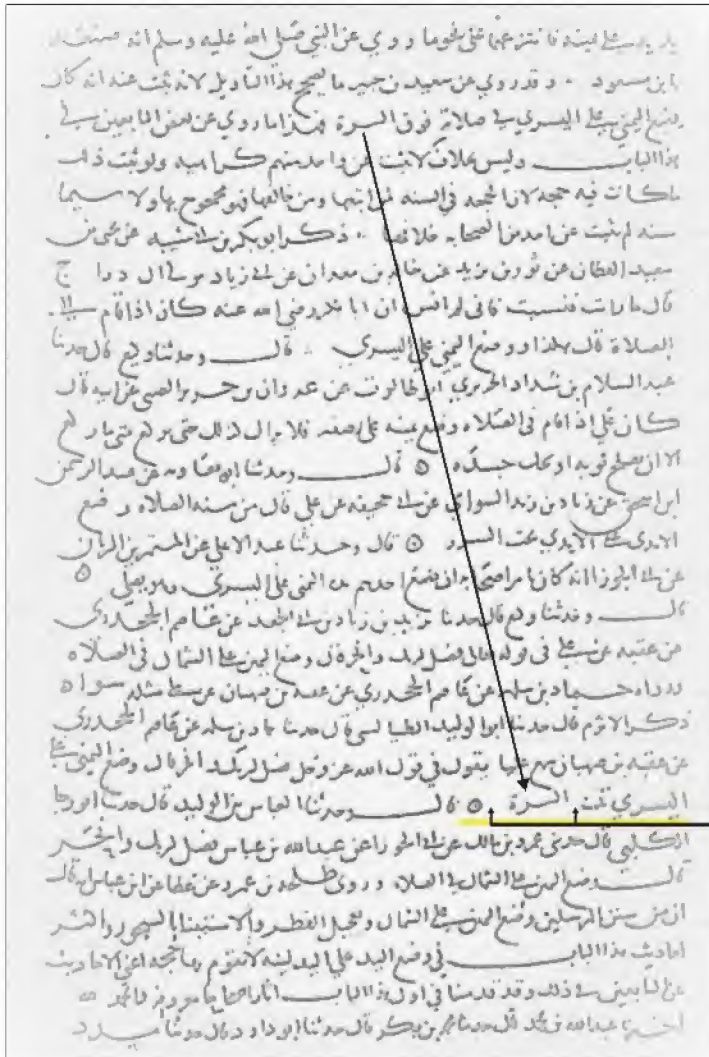 يده على يمينه فانتزعها على نحو ما روي عن النبي صلى الله عليه وسلم انه صنعه
بابن مسعود وقد روي عن سعيد بن جبير ما يصحح هذا التاويل لانه ثبت عنه انه كان
يضع اليمنى على اليسرى في صلاته فوق السرة فهذا ما روي عن بعض التابعين في
هذا الباب وليس بخلاف لانه لا يثبت عن واحد منهم كراهية ولو ثبت ذلك
ما كانت فيه حجه لان الحجه في السنه لمن اتبعها ومن خالفها فهو محجوج بها ولا سيما
سنه لم يثبت عن احد من الصحابه خلافها ذكر ابو بكر بن ابي شيبه عن يحيى بن
سعيد القطان عن ثور بن يزيد عن خالد بن معدان عن ابي زياد مولى ال دراج
قال ما رايت فنسيت فاني لم انس ان ابا بكر رضي الله عنه كان اذا قام في
الصلاة قال هكذا ووضع اليمنى على اليسرى قال وحدثنا وكيع قال حدثنا
عبد السلام بن شداد الجريري ابو طالوت عن غزوان بن جرير الضبي عن ابيه قال
كان علي اذا قام في الصلاه وضع يمينه على رصغه فلا يزال كذلك حتى يركع متى ما ركع
الا ان يصلح ثوبه او يحك جسده قال وحدثنا ابو معاويه عن عبد الرحمن
ابن اسحق عن زياد بن زيد السوائي عن ابي جحيفه عن علي قال من سنه الصلاه وضع
الايدي على الايدي تحت السرر قال وحدثنا عبد الاعلى عن المستمر بن الريان
عن ابي الجوزا انه كان يامر اصحابه ان يضع احدهم يده اليمنى على اليسرى وهو يصلي
قال وحدثنا وكيع قال حدثنا يزيد بن زياد بن ابي الجعد عن عاصم الجحدري
عن عقبه عن علي في قوله تعالى فصل لربك وانحر قال وضع اليمين على الشمال في الصلاه
ورواه حماد بن سلمه عن عاصم الجحدري عن عقبه بن صهبان عن علي مثله سوا
ذكر الاثرم قال حدثنا ابو الوليد الطيالسي قال حدثنا حماد بن سلمه عن عاصم الجحدري
عن عقبه بن صهبان سمع عليا يقول في قول الله عز وجل فصل لربك وانحر قال وضع اليمنى على
اليسرى تحت السرة قال وحدثنا العباس بن الوليد قال حدثنا ابو رجا
الكليبي قال حدثني عمرو بن مالك عن ابي الجوزا عن عبد الله بن عباس فصل لربك وانحر
قال وضع اليمين على الشمال في الصلاه وروى طلحه بن عمرو عن عطا عن ابن عباس انه قال
ان من سنن المرسلين وضع اليمين على الشمال وتعجيل الفطر والاستينا بالسحور واكثر
احاديث هذا الباب في وضع اليد على اليد لينه لا تقوم بها حجه اعني الاحاديث
عن التابعين في ذلك وقد قدمنا في اول هذا الباب اثارا صحاحا مرفوعه
اخبرنا عبد الله بن محمد قال حدثنا محمد بن بكر قال حدثنا ابو داود قال حدثنا